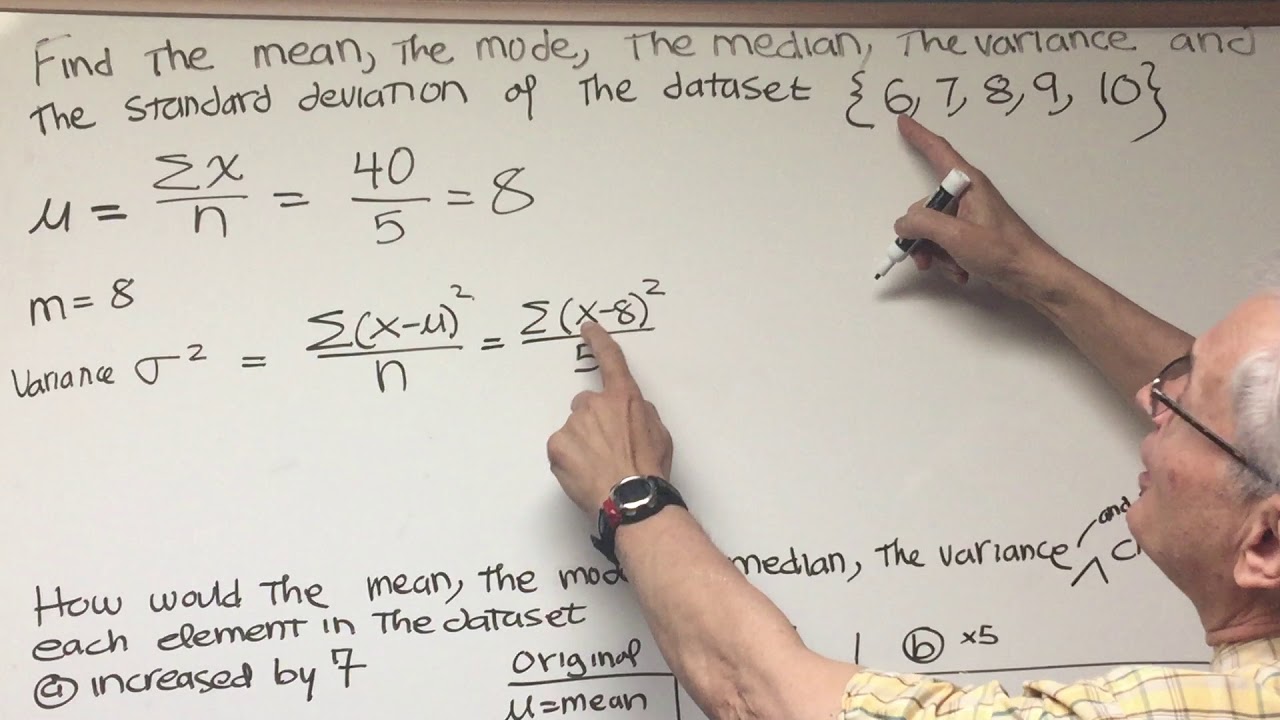 Find The mean, The mode, The median, The variance and
The standard deviation of The dataset {6, 7, 8, 9, 10}
μ = Σx/n = 40/5 = 8
m = 8
Variance σ² = Σ(x-μ)²/n = Σ(x-8)²/5
and
How would The mean, the median, The variance
each element in The dataset
ⓐ increased by 7
original
μ = mean
ⓑ x5